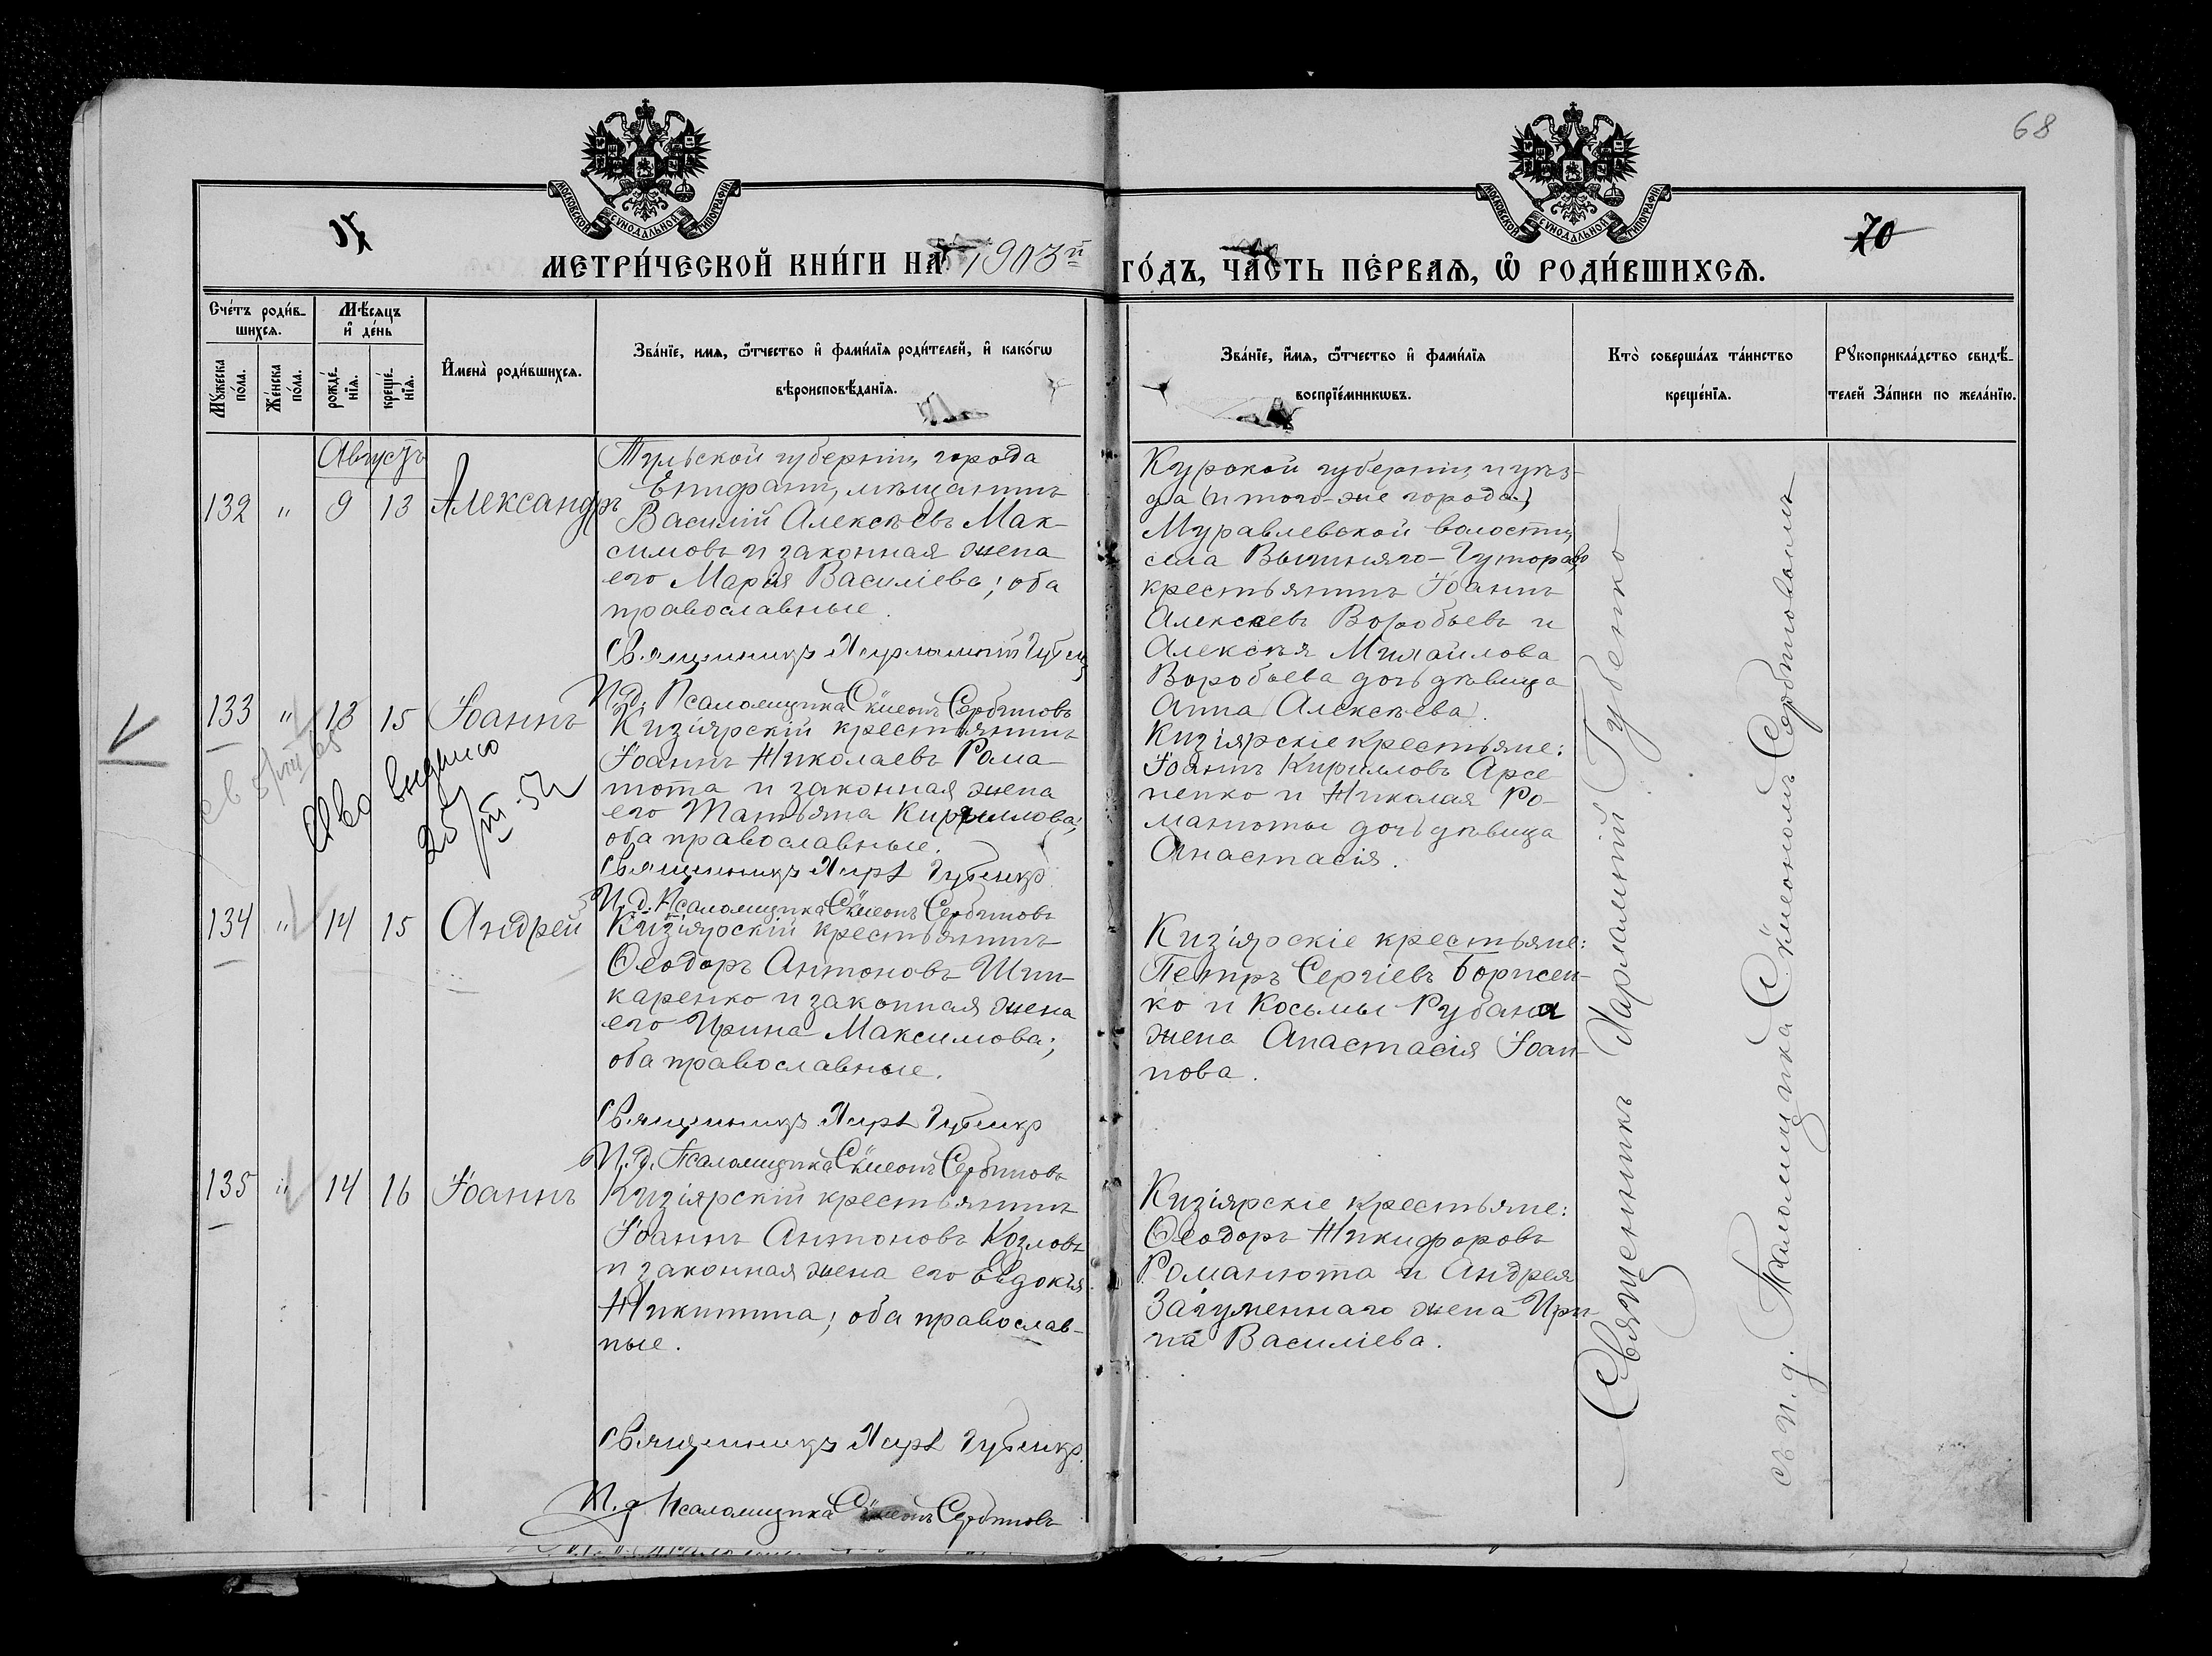 68
70
МОСКОВСКОЙ СѴНОДАЛЬНОЙ ТИПОГРАФІИ
МОСКОВСКОЙ СѴНОДАЛЬНОЙ ТИПОГРАФІИ
МЕТРИ́ЧЕСКОЙ КНИ́ГИ НА 1903й ГО́ДЪ, ЧА́СТЬ ПЕ́РВАЯ, Ѡ РОДИ́ВШИХСЯ.
Сче́тъ роди́в-
шихся.
Мꙋ́жеска по́ла.
Же́нска по́ла.
Мѣ́сяцъ
и҆ де́нь
рожде́нїя.
креще́нїя.
И҆мена̀ роди́вшихся.
Зва́нїе, имя, ѻ҆́тчество и҆ фами́лїя роди́телей, и҆ како́гѡ
вѣроисповѣ́данїя.
Зва́нїе, и҆́мя, ѻ҆́тчество и҆ фами́лїя
воспрїе́мникѡвъ.
Кто̀ соверша́лъ та́инство
креще́нїя.
Рꙋкоприкла́дство свидѣ́-
телей За́писи по жела́нїю.
Августъ
132 " 9 13 Александръ
Тульской губерніи, города
Епифани, мѣщанинъ
Василій Алексѣевъ Мак-
симовъ и законная жена
его Марія Василіева; оба
православные.
Священникъ Харлампій Губен
И.д. Псаломщика Сѵмеонъ Сербиновъ
Курской губерніи, и уѣз-
да (и того-же города)
Муравлевской волости,
села Вышняго-Гуторово
крестьянинъ Іоаннъ
Алексѣевъ Воробьевъ и
Алексѣя Михаилова
Воробьева дочь дѣвица
Анна (Алексѣева).
133 " 13 15 Іоаннъ
Кизіярскій крестьянинъ
Іоаннъ Николаевъ Рома-
нюта и законная жена
его Татьяна Кириллова;
оба православные.
Священникъ Харл Губенко
И.д. Псаломщика Сѵмеонъ Сербиновъ
Кизіярскіе крестьяне:
Іоаннъ Кирилловъ Арсе-
ненко и Николая Ро-
манюты дочь дѣвица
Анастасія.
св
выдано
25/III-52
134 " 14 15 Андрей
Кизіярскій крестьянинъ
Ѳеодоръ Антоновъ Шин-
каренко и законная жена
его Ирина Максимова;
оба православные.
Священникъ Харл Губенко
И.д. Псаломщика Сѵмеонъ Сербиновъ
Кизіярскіе крестьяне:
Петръ Сергіевъ Борисен-
ко и Косьмы Рубана
жена Анастасія Іоан-
нова.
135 " 14 16 Іоаннъ
Кизіярскій крестьянинъ
Іоаннъ Антоновъ Козловъ
и законная жена его Евдокія
Никитина; оба православ-
ные.
Священникъ Харл Губенко
И.д. Псаломщика Сѵмеонъ Сербиновъ
Кизіярскіе крестьяне:
Ѳеодоръ Никифоровъ
Романюта и Андрея
Загуменнаго жена Ири-
на Василіева.
Священникъ Харлампій Губенко
съ и.д. Псаломщика Сѵмеономъ Сербиновымъ